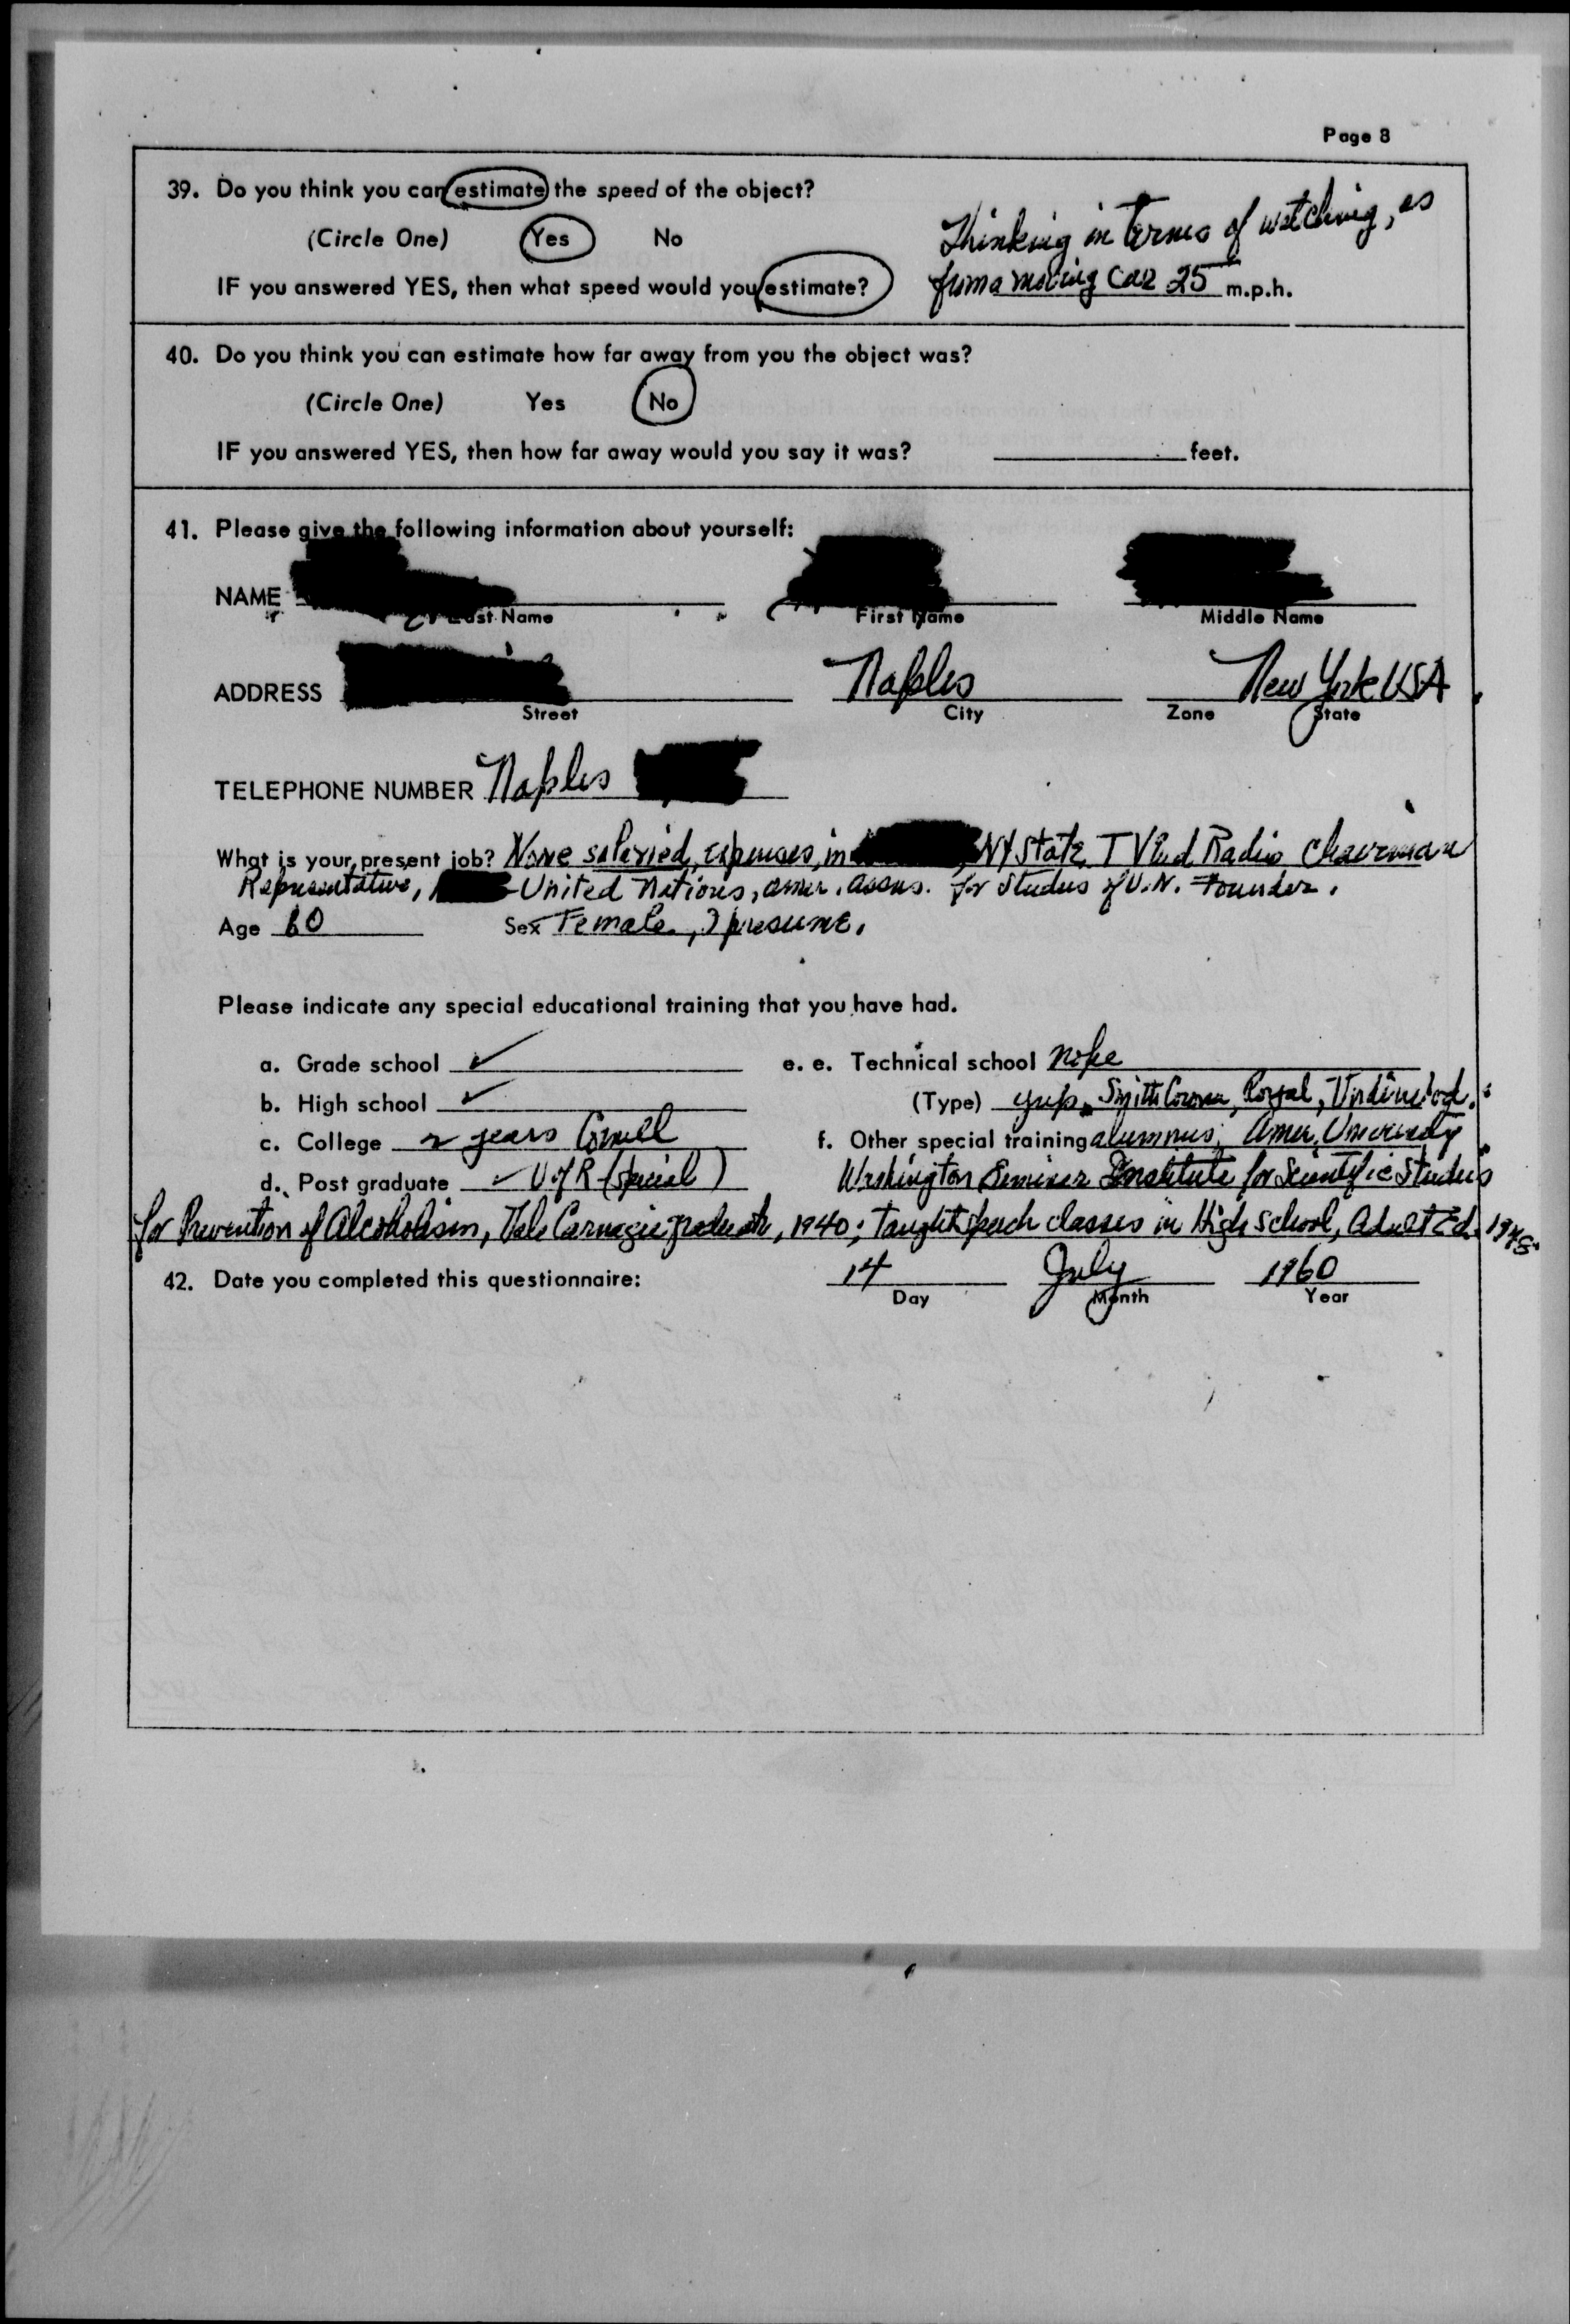 Page 8
39. Do you think you can estimate the speed of the object?
Thinking in terms of watching, as
(Circle One) Yes No
IF you answered YES, then what speed would you estimate? from a moving car 25 m.p.h.
40. Do you think you can estimate how far away from you the object was?
(Circle One) Yes No
IF you answered YES, then how far away would you say it was? feet.
41. Please give the following information about yourself:
NAME
Last Name First Name Middle Name
ADDRESS Naples New York USA
Street City Zone State
TELEPHONE NUMBER Naples
What is your present job? None salaried, expenses, in NY State TV and Radio Chairman
Representative, United Nations, Amer. Assns. for Studies of U.N. Founder.
Age 60 Sex Female, I presume.
Please indicate any special educational training that you have had.
a. Grade school ✓ e. e. Technical school nope
b. High school ✓ (Type) yup. Smith Corona, Royal, Underwood.
c. College 2 years Cornell f. Other special training alumnus, Amer. University
d. Post graduate ✓ U of R (special) Washington Seminar Institute for Scientific Studies
for Prevention of Alcoholism, Dale Carnegie graduate, 1940; Taught speech classes in High School, Adult Ed. 1948.
42. Date you completed this questionnaire: 14 July 1960
Day Month Year